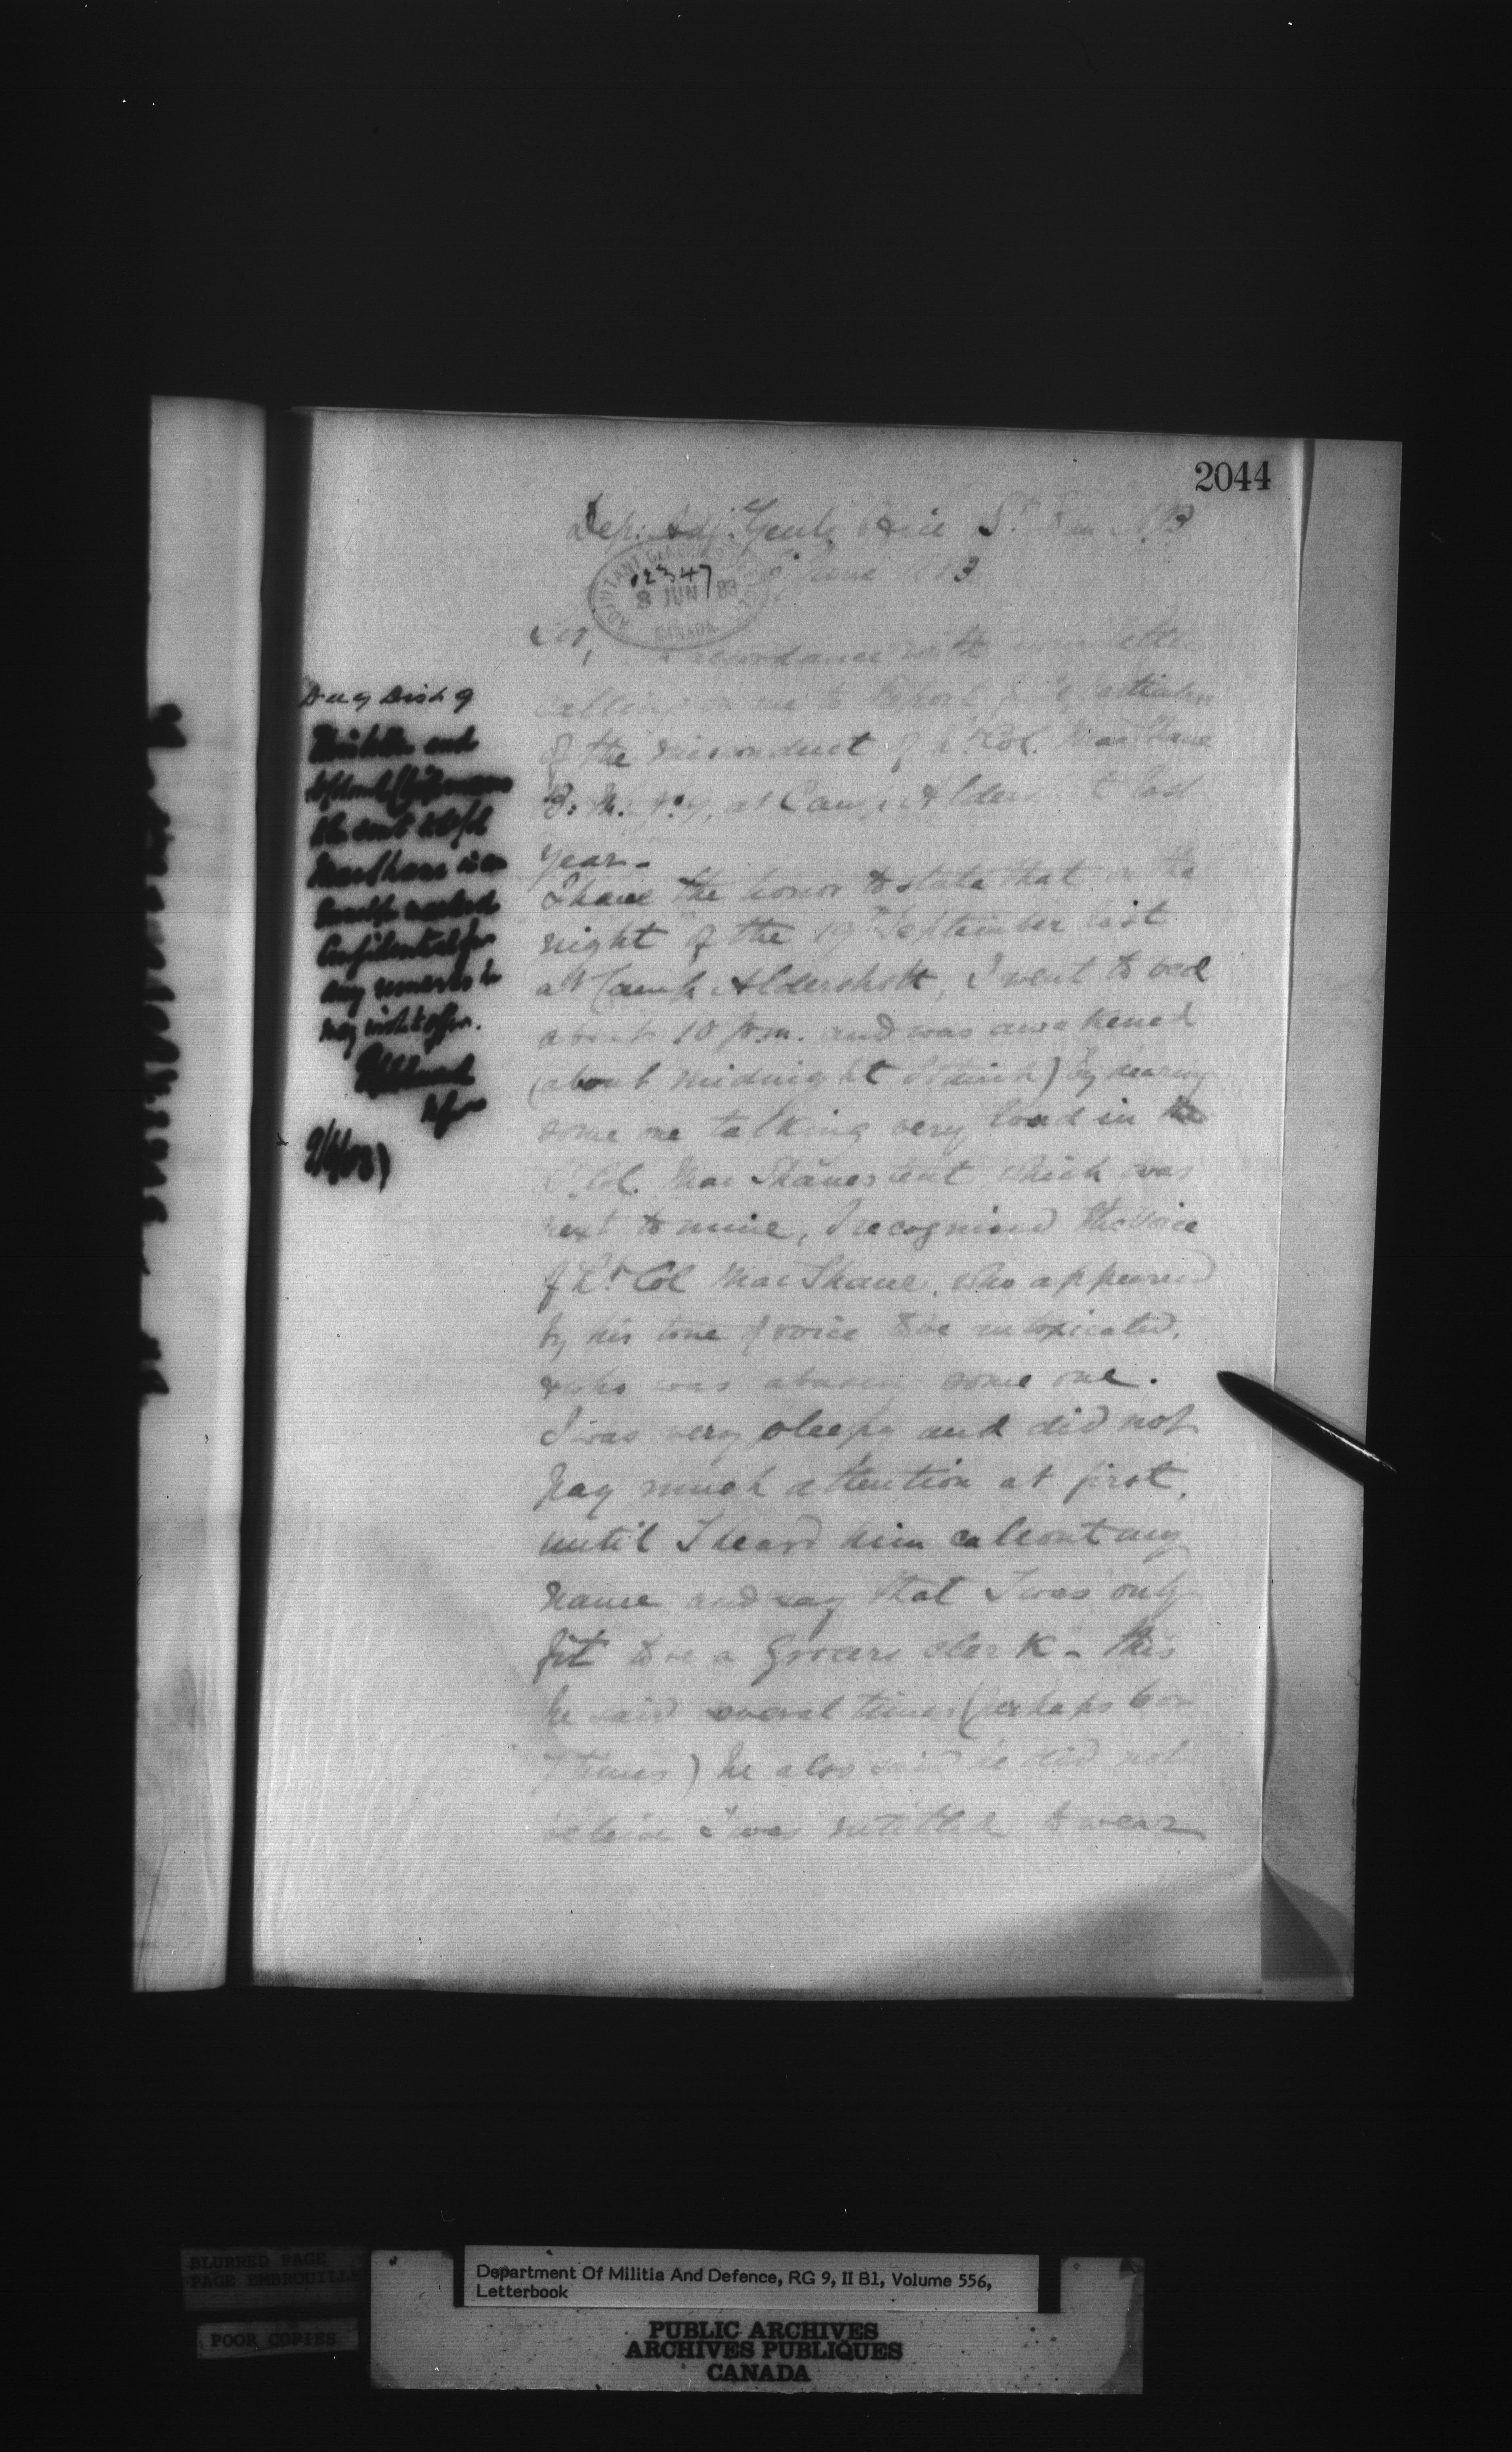 2044
Dep: Adj: Genls Office St. N.B
June 1883
ADJUTANT GENERAL'S OFFICE
02347
8 JUN 83
CANADA
Sir,
accordance with your letter
calling on me to report particulars
of the misconduct of Lt Col. MacShane
B. M. No 9, at Camp Aldershott last
year -
I have the honor to state that on the
night of the 19th September last
at Camp Aldershott, I went to bed
about 10 p.m. and was awakened
(about midnight I think) by hearing
some one talking very loud in the
Lt. Col. MacShanes tent which was
next to mine, I recognised the voice
of Lt Col MacShane, who appeared
by his tone of voice to be intoxicated,
& who was abusing some one.
I was very sleepy and did not
pay much attention at first,
until I heard him call out my
name and say that I was only
fit to be a Grocers clerk - this
he said several times (perhaps 6 or
7 times) he also said he did not
believe I was entitled to wear
D A G Dist 9
This letter and
to Lt Col
MacShane in an
marked
Confidential for
any remarks he
may wish to offer.
9/6/83
BLURRED PAGE
PAGE EMBROUILLE
POOR COPIES
Department Of Militia And Defence, RG 9, II B1, Volume 556,
Letterbook
PUBLIC ARCHIVES
ARCHIVES PUBLIQUES
CANADA